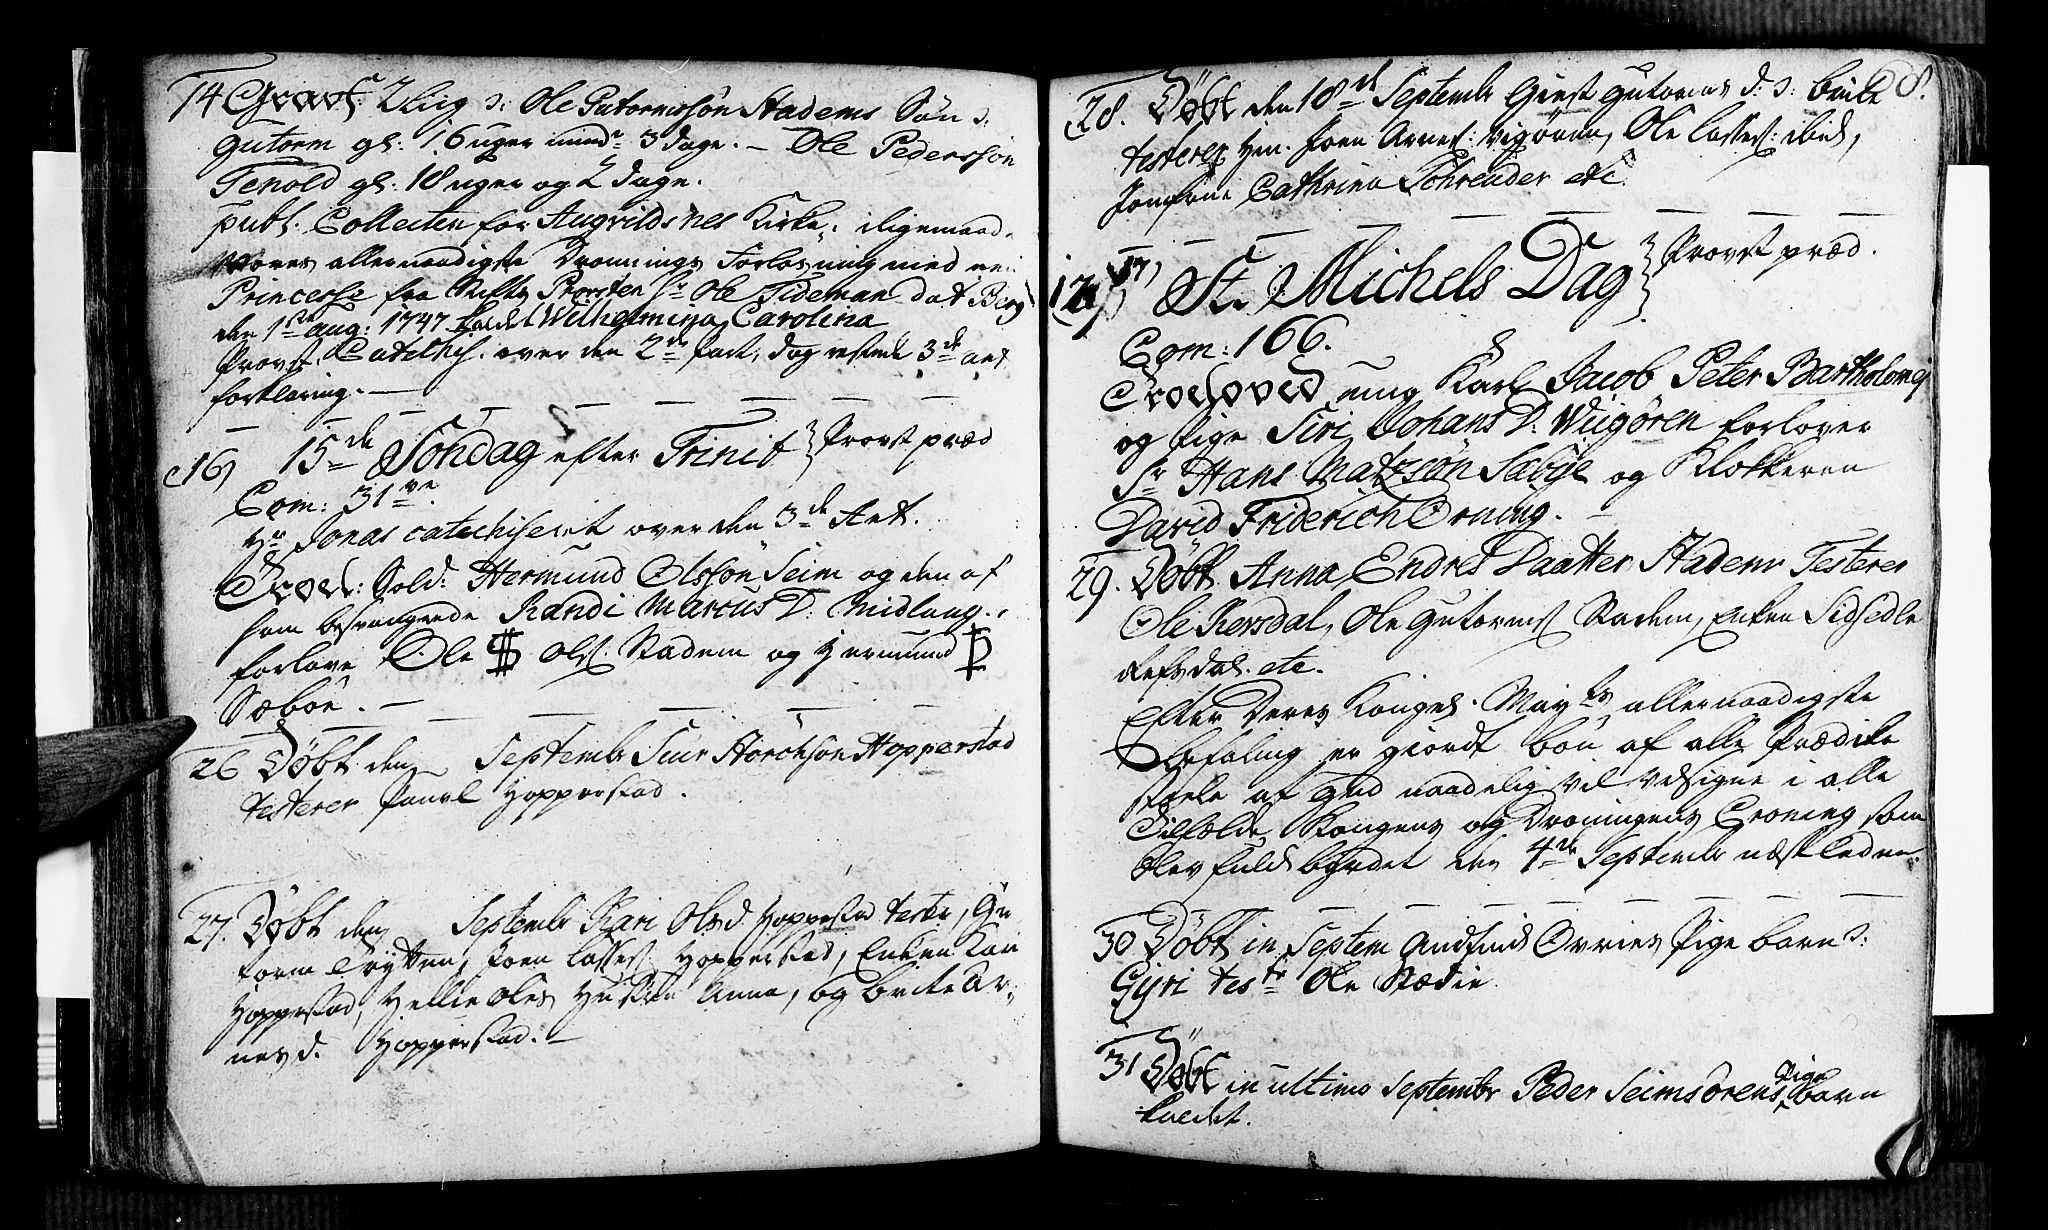 14 Gravf: 2 Liig ɔ: Ole Gutormssøn Stadems Søn ɔ:
Gutorm gl: 16 uger mindr 3 dage. – Ole Pederssøn
Tenold gl: 18 uger og 2 dage.
publ: Collecten for Augvildsnes Kirke, iligemaade
Vores allernaadigste Dronnings Forløsning med en
Princesse fra Stifts Provsten Hr Ole Tideman dat Berg
den 1ste aug: 1747 kaldet Wilhelmina Carolina
Provst. Catechis. over den 2de part, dog resterede 3de art
forklaring. –
16) 15de Søndag efter Trinit } Provst præd
Com: 31ve
Hr Jonas catechiseret over den 3de Art.
Troel: Sold: Hermund Olssøn Seim og den af
ham besvangrede Randi Marcus D: Midlang.
forlove Ole Ols. Stadem og Hermund
Sæbøe. –
26 Døbt den Septembr Siur Størchsøn Hopperstad
testerer Povel Hopperstad.
27. Døbt den Septembr Kari Olsd Hopperstad teste, Gu
torm Trytten, Joen Lasses Hopperstad, Enken Kari
Hopperstad, Hellie Oles Hustru Anna, og Brite Ar-
nes d. Hopperstad. –
28.
28. Døbt den 18de Septembr Giest Gutorms d: ɔ: Brite
testerer Hr. Joen Arnes: Vigøren, Ole Lasses: ibid,
Jomfrue Cathrina Schreuder etc.
17) St. Michels Dag } Provst præd.
Com: 166.
Troeloved ung Karl Jacob Peter Bartholomej
og Pige Siri Johans D: Wiigøren forlover
Sr Hans Matzsøn Sabye og Klokkeren
David Friderich Orning. –
29. Døbt Anna Endres Daatter Stadem Testerer
Ole Refsdal, Ole Gutorms Stadem, Enken Sidsedle
Refsdal. etc.
Efter Deres Kongel. Mayts allernaadigste
befaling er giordt bøn af alle Prædike
stoele af Gud naadelig vil velsigne i alle
Tilfælde Kongens og Dronningens Croning som
blev fuldbyrdet den 4de Septembr næstledne.
30 Døbt in Septem Andfind Ovries Pige barn ɔ:
Gyri testr Ole Stædie
31 Døbt in ultimo Septembr Peder Seimsørens Pige barn
kaldet.